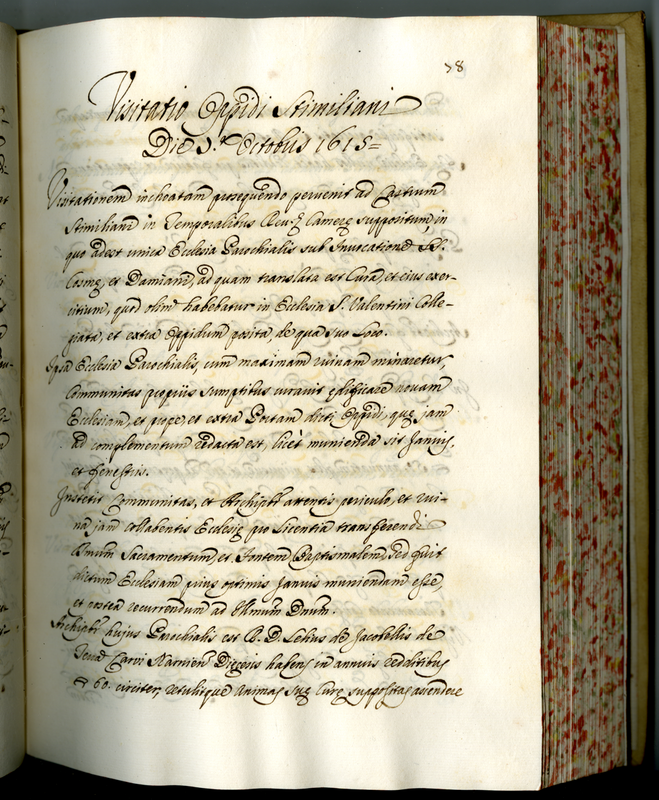 78
Visitatio Oppidi Stimiliani
Die 5.ta Octobris 1615=
Visitationem inchoatam prosequendo pervenit ad Castrum
Stimilianū in Temporalibus Reu: Camerę suppositum, in
quo adest unica Ecclesia Parochialis sub Invocatione SS.
Cosmę, et Damiani, ad quam translata est Cura, et eius exer-
citium, quod olim habebatur in Ecclesia S. Valentini Colle-
giata, et extra Oppidum posita, de qua suo loco.
Ipsa Ecclesia Parochialis, cum maximam ruinam minaretur,
Communitas propriis sumptibus curavit ędificare novam
Ecclesiam, et prope, et extra Portam dicti Oppidi, quę jam
ad complementum redacta est, licet munienda sit Januis,
et fenestris.
Institit Communitas, et Archipbr attentis periculo, et rui-
na jam collabentis Ecclesię pro licentia transferendi
Sacramentum, et Fontem Baptismalem, sed fuit
dictum Ecclesiam prius optimis Januis muniendam esse,
et postea recurrendum ad Illmum Dnum.
Archipbr hujus Parochialis est R. D. Lelius de Jacobellis de
Narnien Dięcesis habens in annuis redditibus
60. circiter, retulitque Animas suę Curę suppositas ascendere